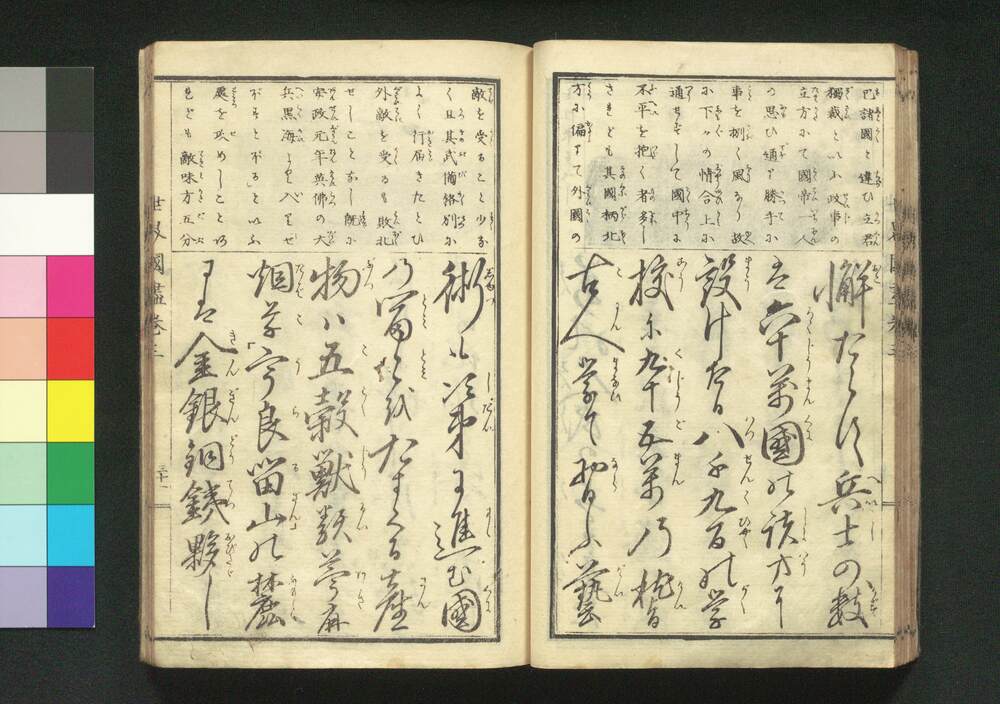 巴諸國と違ひ立君
獨裁といふ政事の
立方にて國帝一人
の思ひ通り勝手に
事を捌く風なり故
に下々の情合上に
通せずして國中に
不平を抱く者多し
されども其國柄北
方に偏りて外國の
懈たらず兵士の数
は六十萬國の諸方に
設け有る八千九百の学
校に九十五萬の
学て習ふ藝
敵を受ること少な
く且其武備格別に
よく行届きたとひ
外敵を受るも敗北
せしことなし既に
安政元年英佛の大
兵黒海より入りせ
ばすとぽるといふ
處を攻めしことあ
れども敵味方五分
術は次第に進む國
の富をたすくる産
物ハ五穀獣類苧麻
烟草宇良留山の麓
には金銀銅鉄夥し
世界國盡巻三
三十一